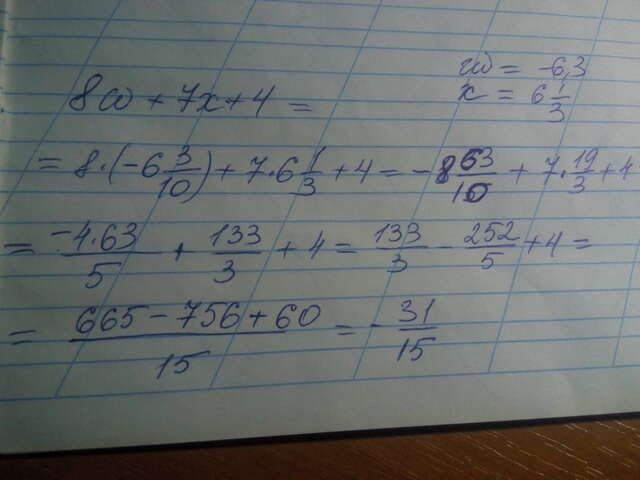 8w + 7x + 4 =
w = -6,3
x = 6 1/3
= 8·(-6 3/10) + 7·6 1/3 + 4 = - 8 63/10 + 7·19/3 + 4
= -4·63/5 + 133/3 + 4 = 133/3 - 252/5 + 4 =
= 665 - 756 + 60/15 = - 31/15